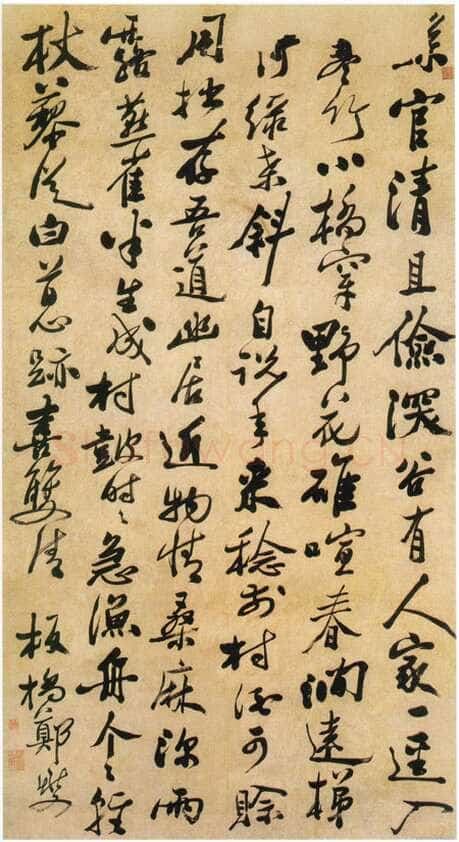 縣官清且儉深谷有人家一逕入
寒竹小橋穿野花碓喧春澗遠梯
倚綠桒斜自說年來稔前村酒可賒
用拙存吾道幽居近物情桑麻深雨
露燕雀半生成村鼓時〻急漁舟个〻輕
杖藜從白首心跡喜雙清 板橋鄭燮